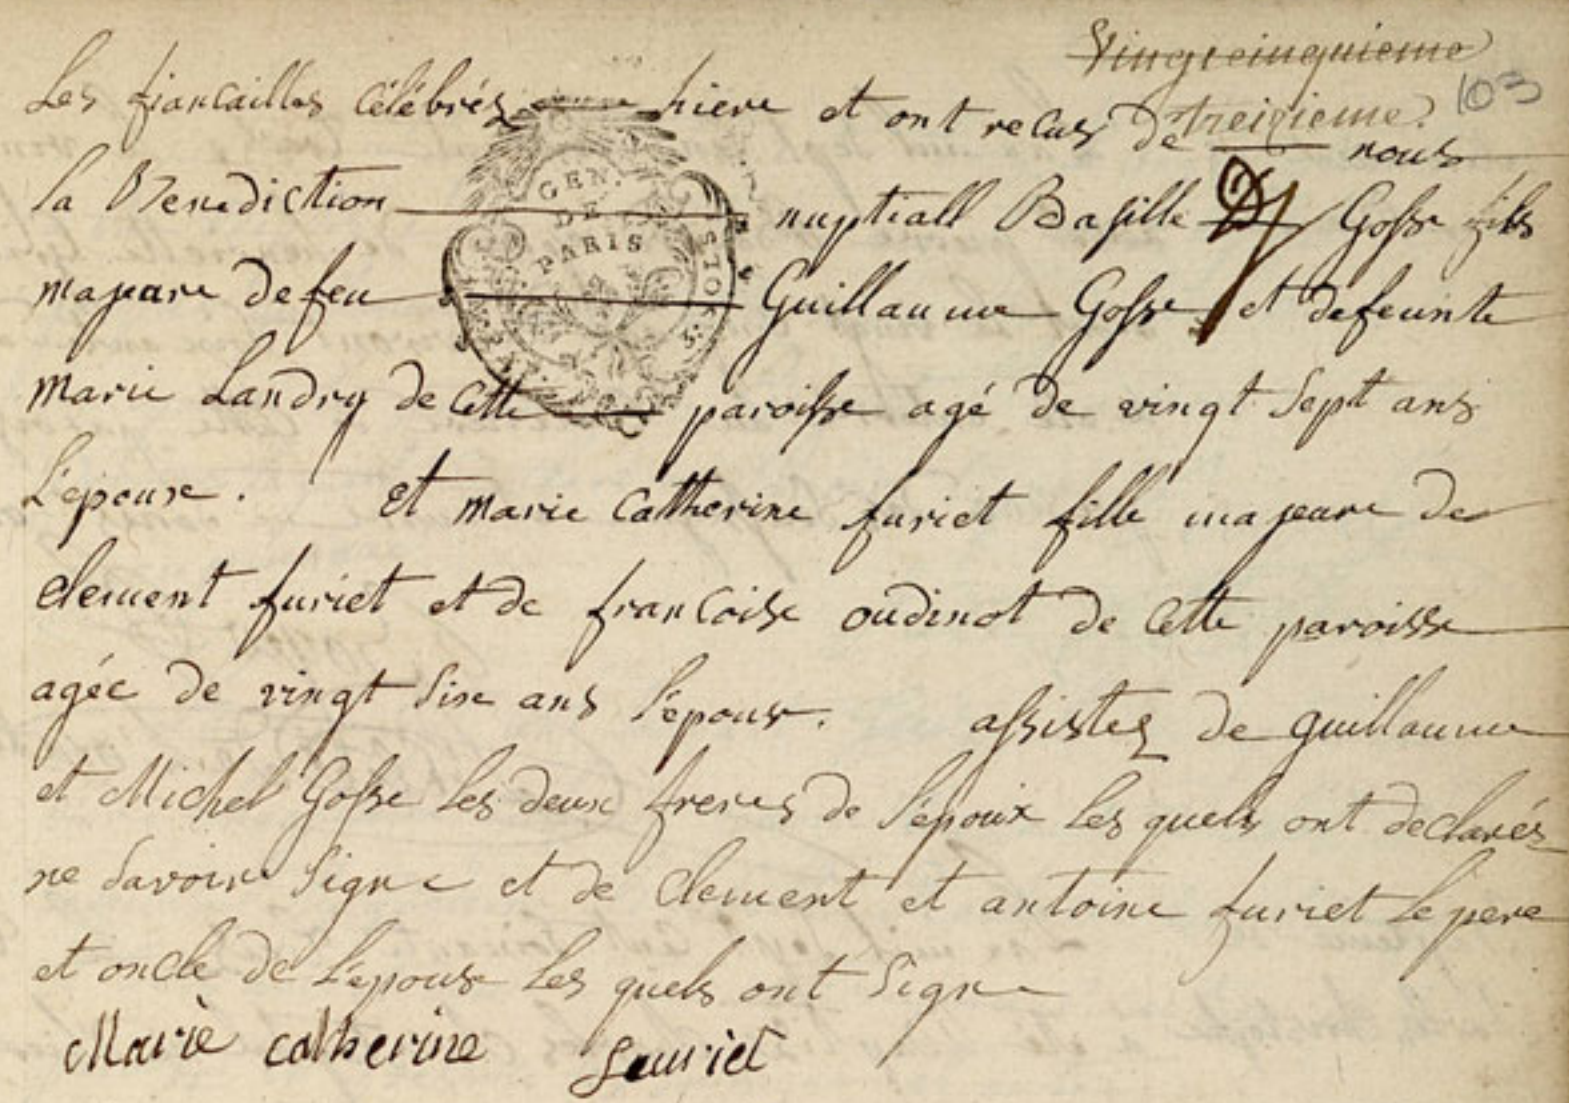 Vingtcinquieme
103
treizieme.
Les fiancailles célébrés hiere et ont recus de nous
la Benediction nuptiall Basille Gosse fils
majeare de feu Guillaume Gosse et defeunte
marie Landry de cette paroisse agé de vingt sept ans
L'epouse. et marie catherine furiet fille majeare de
clement furiet et de francoise oudinot de cette paroisse
agéé de vingt six ans l'epouse. assistez de guillaume
et Michel Gosse les deux freres de l'epoux les quels ont declarés
ne savoir signe et de clement et antoine furiet le pere
et oncle de l'epouse les quels ont signe
Marie catherine feuriet
GEN.
DE
PARIS